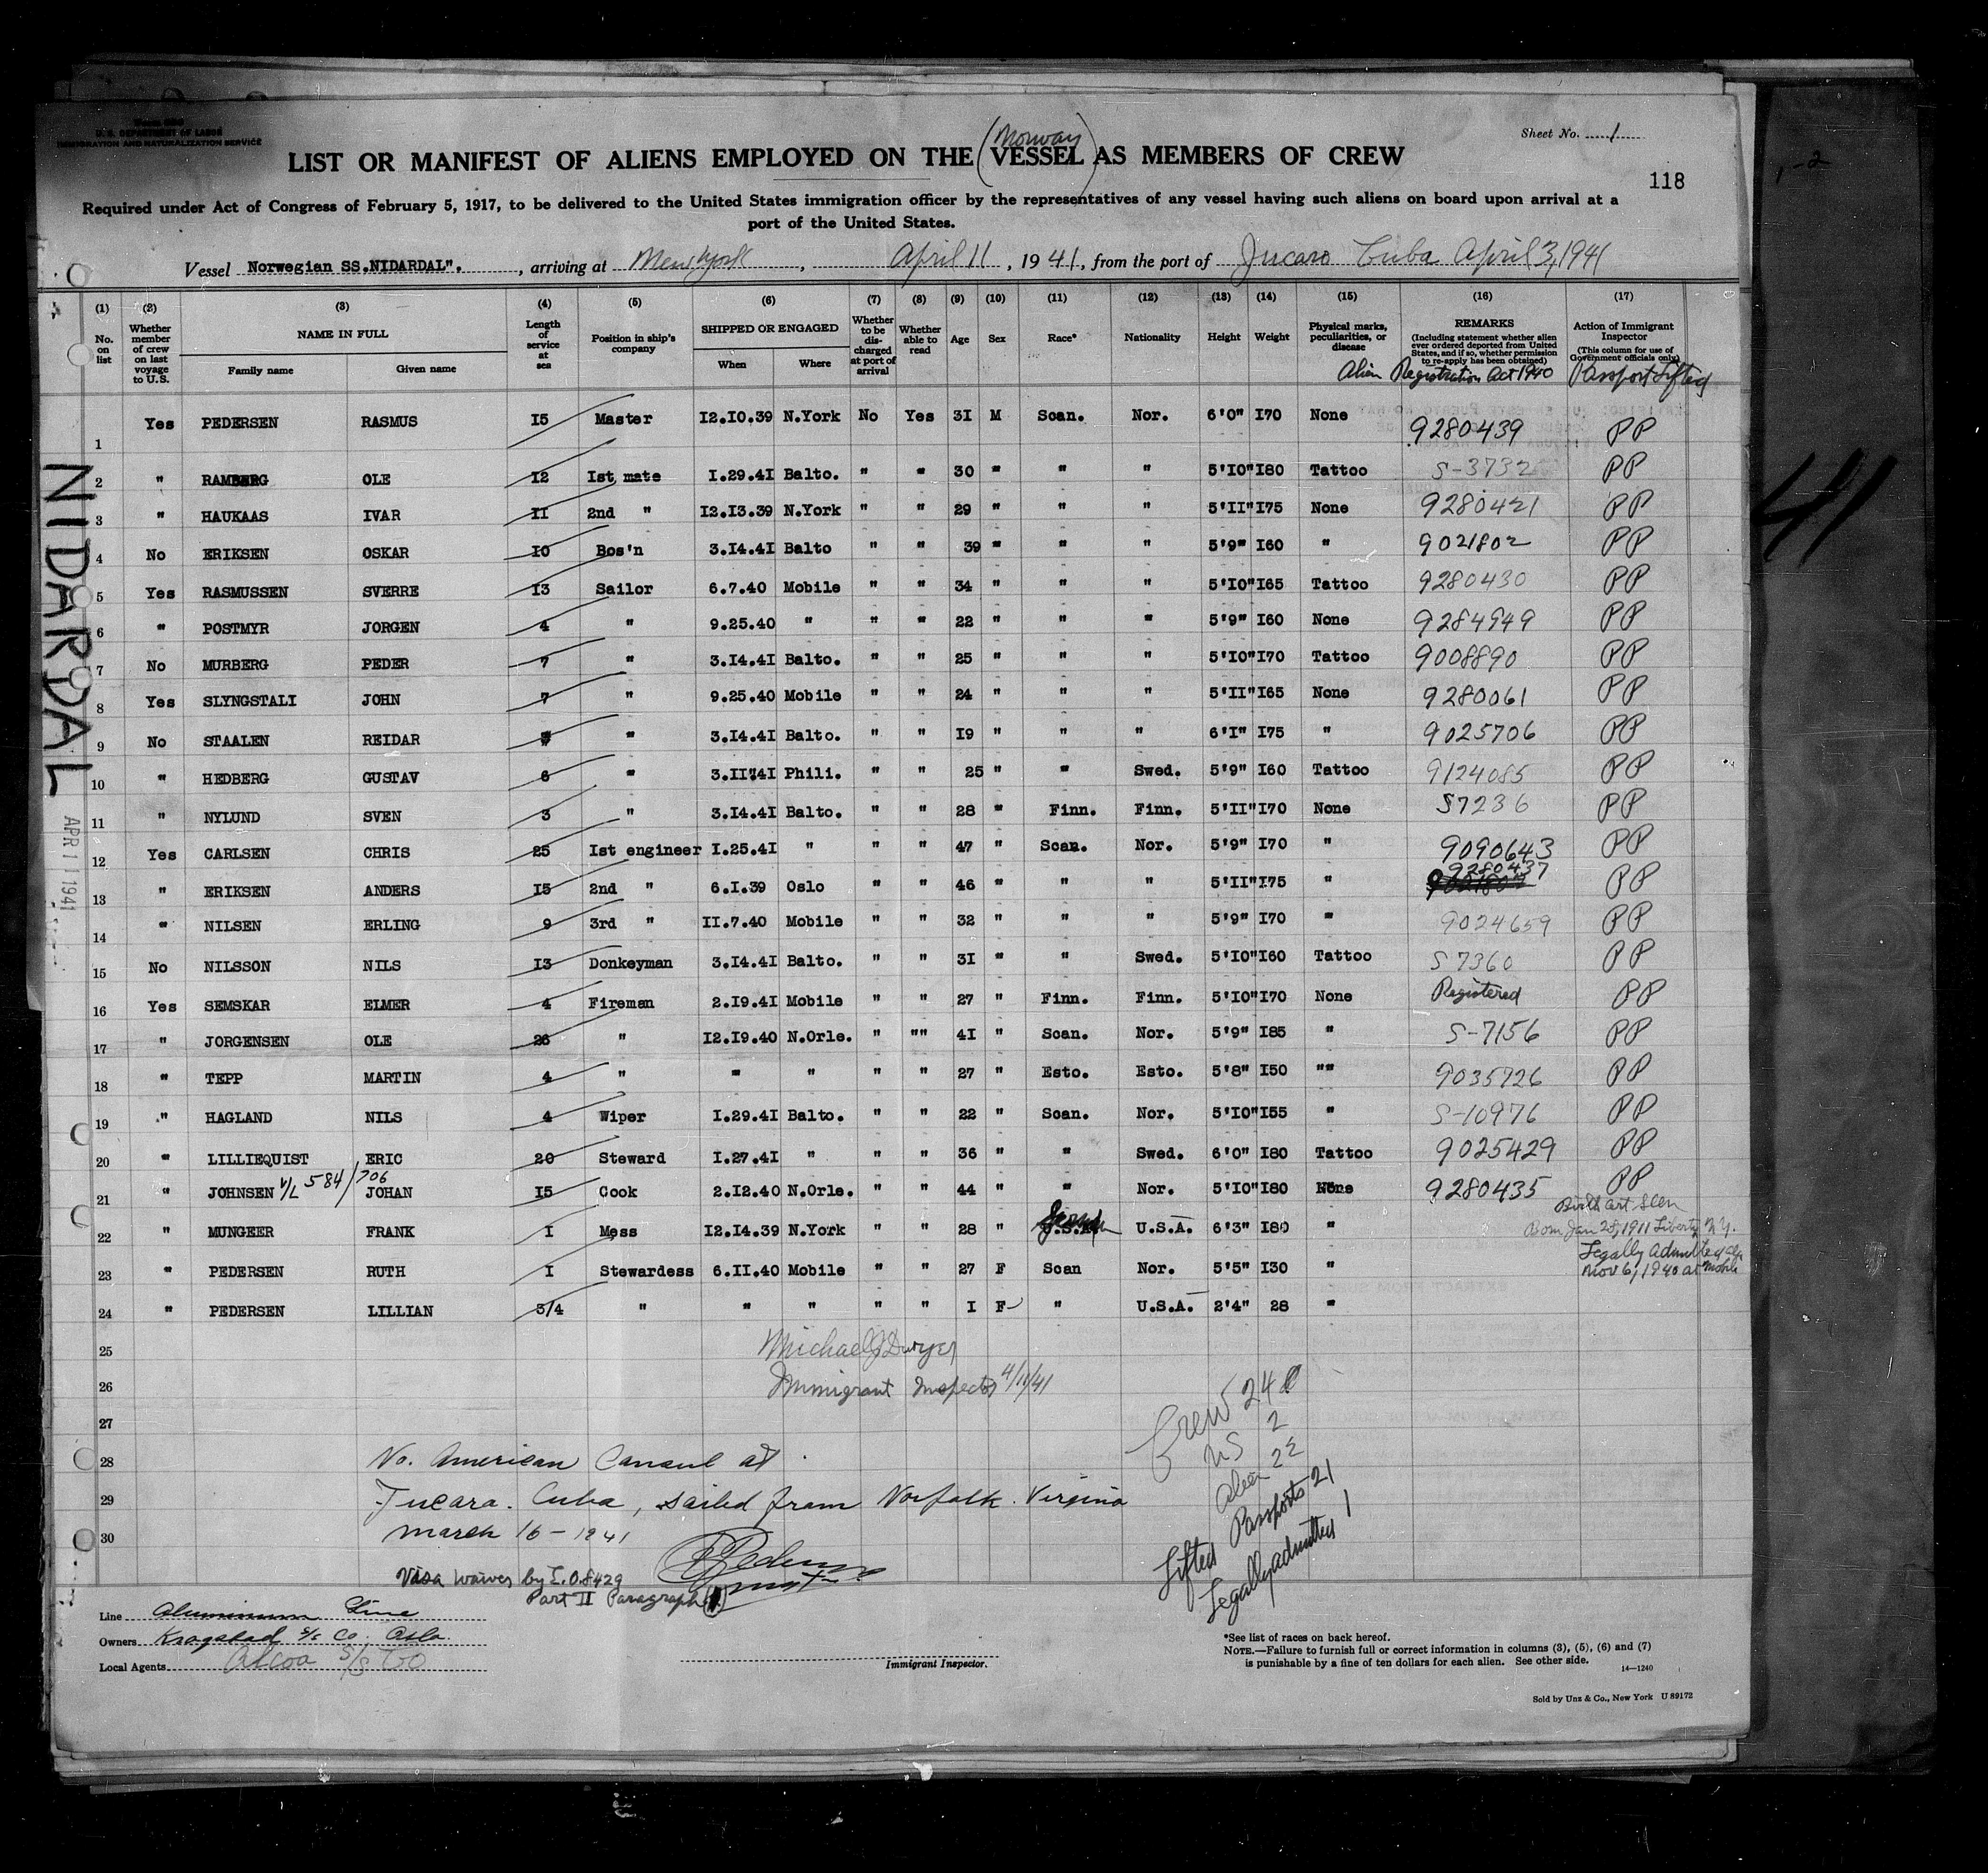 Form 680
U. S. DEPARTMENT OF LABOR
IMMIGRATION AND NATURALIZATION SERVICE
Sheet No. 1
(Norway)
LIST OR MANIFEST OF ALIENS EMPLOYED ON THE VESSEL AS MEMBERS OF CREW
118
1-2
Required under Act of Congress of February 5, 1917, to be delivered to the United States immigration officer by the representatives of any vessel having such aliens on board upon arrival at a
port of the United States.
Vessel Norwegian SS.NIDARDAL". , arriving at New York , April 11 , 1941, from the port of Jucaro Cuba April 3, 1941
(1) No. on list
(2) Whether member of crew on last voyage to U.S.
(3) NAME IN FULL Family name Given name
(4) Length of service at sea
(5) Position in ship's company
(6) SHIPPED OR ENGAGED When Where
(7) Whether to be discharged at port of arrival
(8) Whether able to read
(9) Age
(10) Sex
(11) Race*
(12) Nationality
(13) Height
(14) Weight
(15) Physical marks, peculiarities, or disease
(16) REMARKS (Including statement whether alien ever ordered deported from United States, and if so, whether permission to re-apply has been obtained)
(17) Action of Immigrant Inspector (This column for use of Government officials only)
Alien Registration Act 1940 Passport Lifted
1 Yes PEDERSEN RASMUS 15 Master 12.10.39 N.York No Yes 31 M Scan. Nor. 6'0" 170 None 9280439 PP
2 " RAMBERG OLE 12 1st mate 1.29.41 Balto. " " 30 " " " 5'10" 180 Tattoo S-3732 PP
3 " HAUKAAS IVAR 11 2nd " 12.13.39 N.York " " 29 " " " 5'11" 175 None 9280421 PP
4 No ERIKSEN OSKAR 10 Bos'n 3.14.41 Balto " " 39 " " " 5'9" 160 " 9021802 PP
5 Yes RASMUSSEN SVERRE 13 Sailor 6.7.40 Mobile " " 34 " " " 5'10" 165 Tattoo 9280430 PP
6 " POSTMYR JORGEN 4 " 9.25.40 " " " 22 " " " 5'9" 160 None 9284949 PP
7 No MURBERG PEDER 7 " 3.14.41 Balto. " " 25 " " " 5'10" 170 Tattoo 9008890 PP
8 Yes SLYNGSTALI JOHN 7 " 9.25.40 Mobile " " 24 " " " 5'11" 165 None 9280061 PP
9 No STAALEN REIDAR " 3.14.41 Balto. " " 19 " " " 6'1" 175 " 9025706 PP
10 " HEDBERG GUSTAV 6 " 3.11"41 Phili. " " 25 " " Swed. 5'9" 160 Tattoo 9124085 PP
11 " NYLUND SVEN 3 " 3.14.41 Balto. " " 28 " Finn. Finn. 5'11" 170 None S7236 PP
12 Yes CARLSEN CHRIS 25 1st engineer 1.25.41 " " " 47 " Scan. Nor. 5'9" 170 " 9090643 PP
13 " ERIKSEN ANDERS 15 2nd " 6.1.39 Oslo " " 46 " " " 5'11" 175 " 9280437 9021802 PP
14 " NILSEN ERLING 9 3rd " 11.7.40 Mobile " " 32 " " " 5'9" 170 " 9024659 PP
15 No NILSSON NILS 13 Donkeyman 3.14.41 Balto. " " 31 " " Swed. 5'10" 160 Tattoo S 7360 PP
16 Yes SEMSKAR ELMER 4 Fireman 2.19.41 Mobile " " 27 " Finn. Finn. 5'10" 170 None Registered PP
17 " JORGENSEN OLE 26 " 12.19.40 N.Orle. " "" 41 " Scan. Nor. 5'9" 185 " S-7156 PP
18 " TEPP MARTIN 4 " " " " " 27 " Esto. Esto. 5'8" 150 "" 9035726 PP
19 " HAGLAND NILS 4 Wiper 1.29.41 Balto. " " 22 " Scan. Nor. 5'10" 155 " S-10976 PP
20 " LILLIEQUIST ERIC 20 Steward 1.27.41 " " " 36 " " Swed. 6'0" 180 Tattoo 9025429 PP
21 " JOHNSEN V/L 584/706 JOHAN 15 Cook 2.12.40 N.Orle. " " 44 " " Nor. 5'10" 180 None 9280435 PP
22 " MUNGEER FRANK 1 Mess 12.14.39 N.York " " 28 " U.S.A. U.S.A. 6'3" 180 " Birth Cert Seen Born Jan 28, 1911 Liberty N.Y.
23 " PEDERSEN RUTH 1 Stewardess 6.11.40 Mobile " " 27 F Scan Nor. 5'5" 130 " Legally admitted Nov 6, 1940 at Mobile
24 " PEDERSEN LILLIAN 3/4 " " " " " 1 F " U.S.A. 2'4" 28 "
25
26
27
28
29
30
Michael J Dwyer
Immigrant Inspector 4/11/41
Crew 24
US 2
Alien 22
Lifted Passports 21
Legally admitted 1
No. American Consul at
Jucara. Cuba, sailed from Norfolk. Virginia
March 16 - 1941
Visa waiver by E.O.8429
Part II Paragraph
Line Aluminum Line
Owners Kragstad S/S Co. Oslo.
Local Agents Alcoa S/S Co
Immigrant Inspector.
*See list of races on back hereof.
NOTE.—Failure to furnish full or correct information in columns (3), (5), (6) and (7)
is punishable by a fine of ten dollars for each alien. See other side.
14—1240
Sold by Unz & Co., New York U 89172
NIDARDAL
APR 11 1941
41